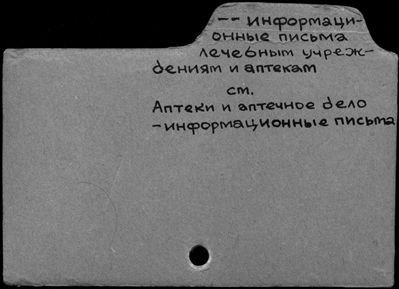 -- информаци-
онные письма
лечебным учреж-
дениям и аптекам
см.
Аптеки и аптечное дело
-информационные письма